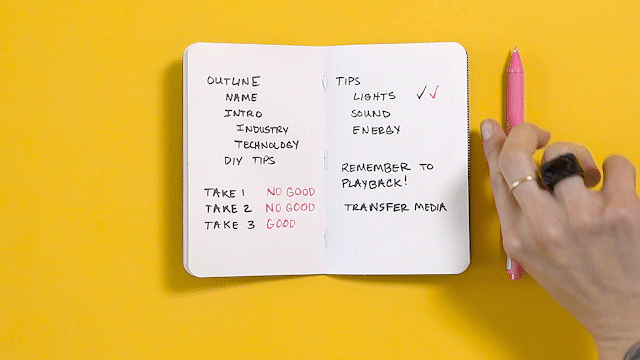 OUTLINE
NAME
INTRO
INDUSTRY
TECHNOLOGY
DIY TIPS
TAKE 1 NO GOOD
TAKE 2 NO GOOD
TAKE 3 GOOD
TIPS
LIGHTS ✓✓
SOUND
ENERGY
REMEMBER TO
PLAYBACK!
TRANSFER MEDIA